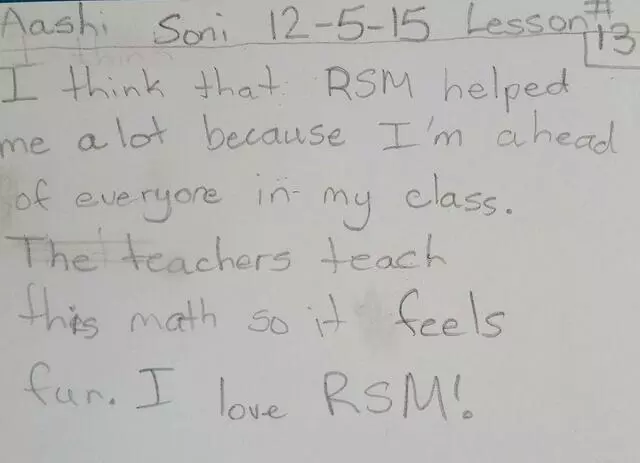 Aashi Soni 12-5-15 Lesson #13
I think that RSM helped
me a lot because I'm ahead
of everyone in my class.
The teachers teach
this math so it feels
fun. I love RSM!